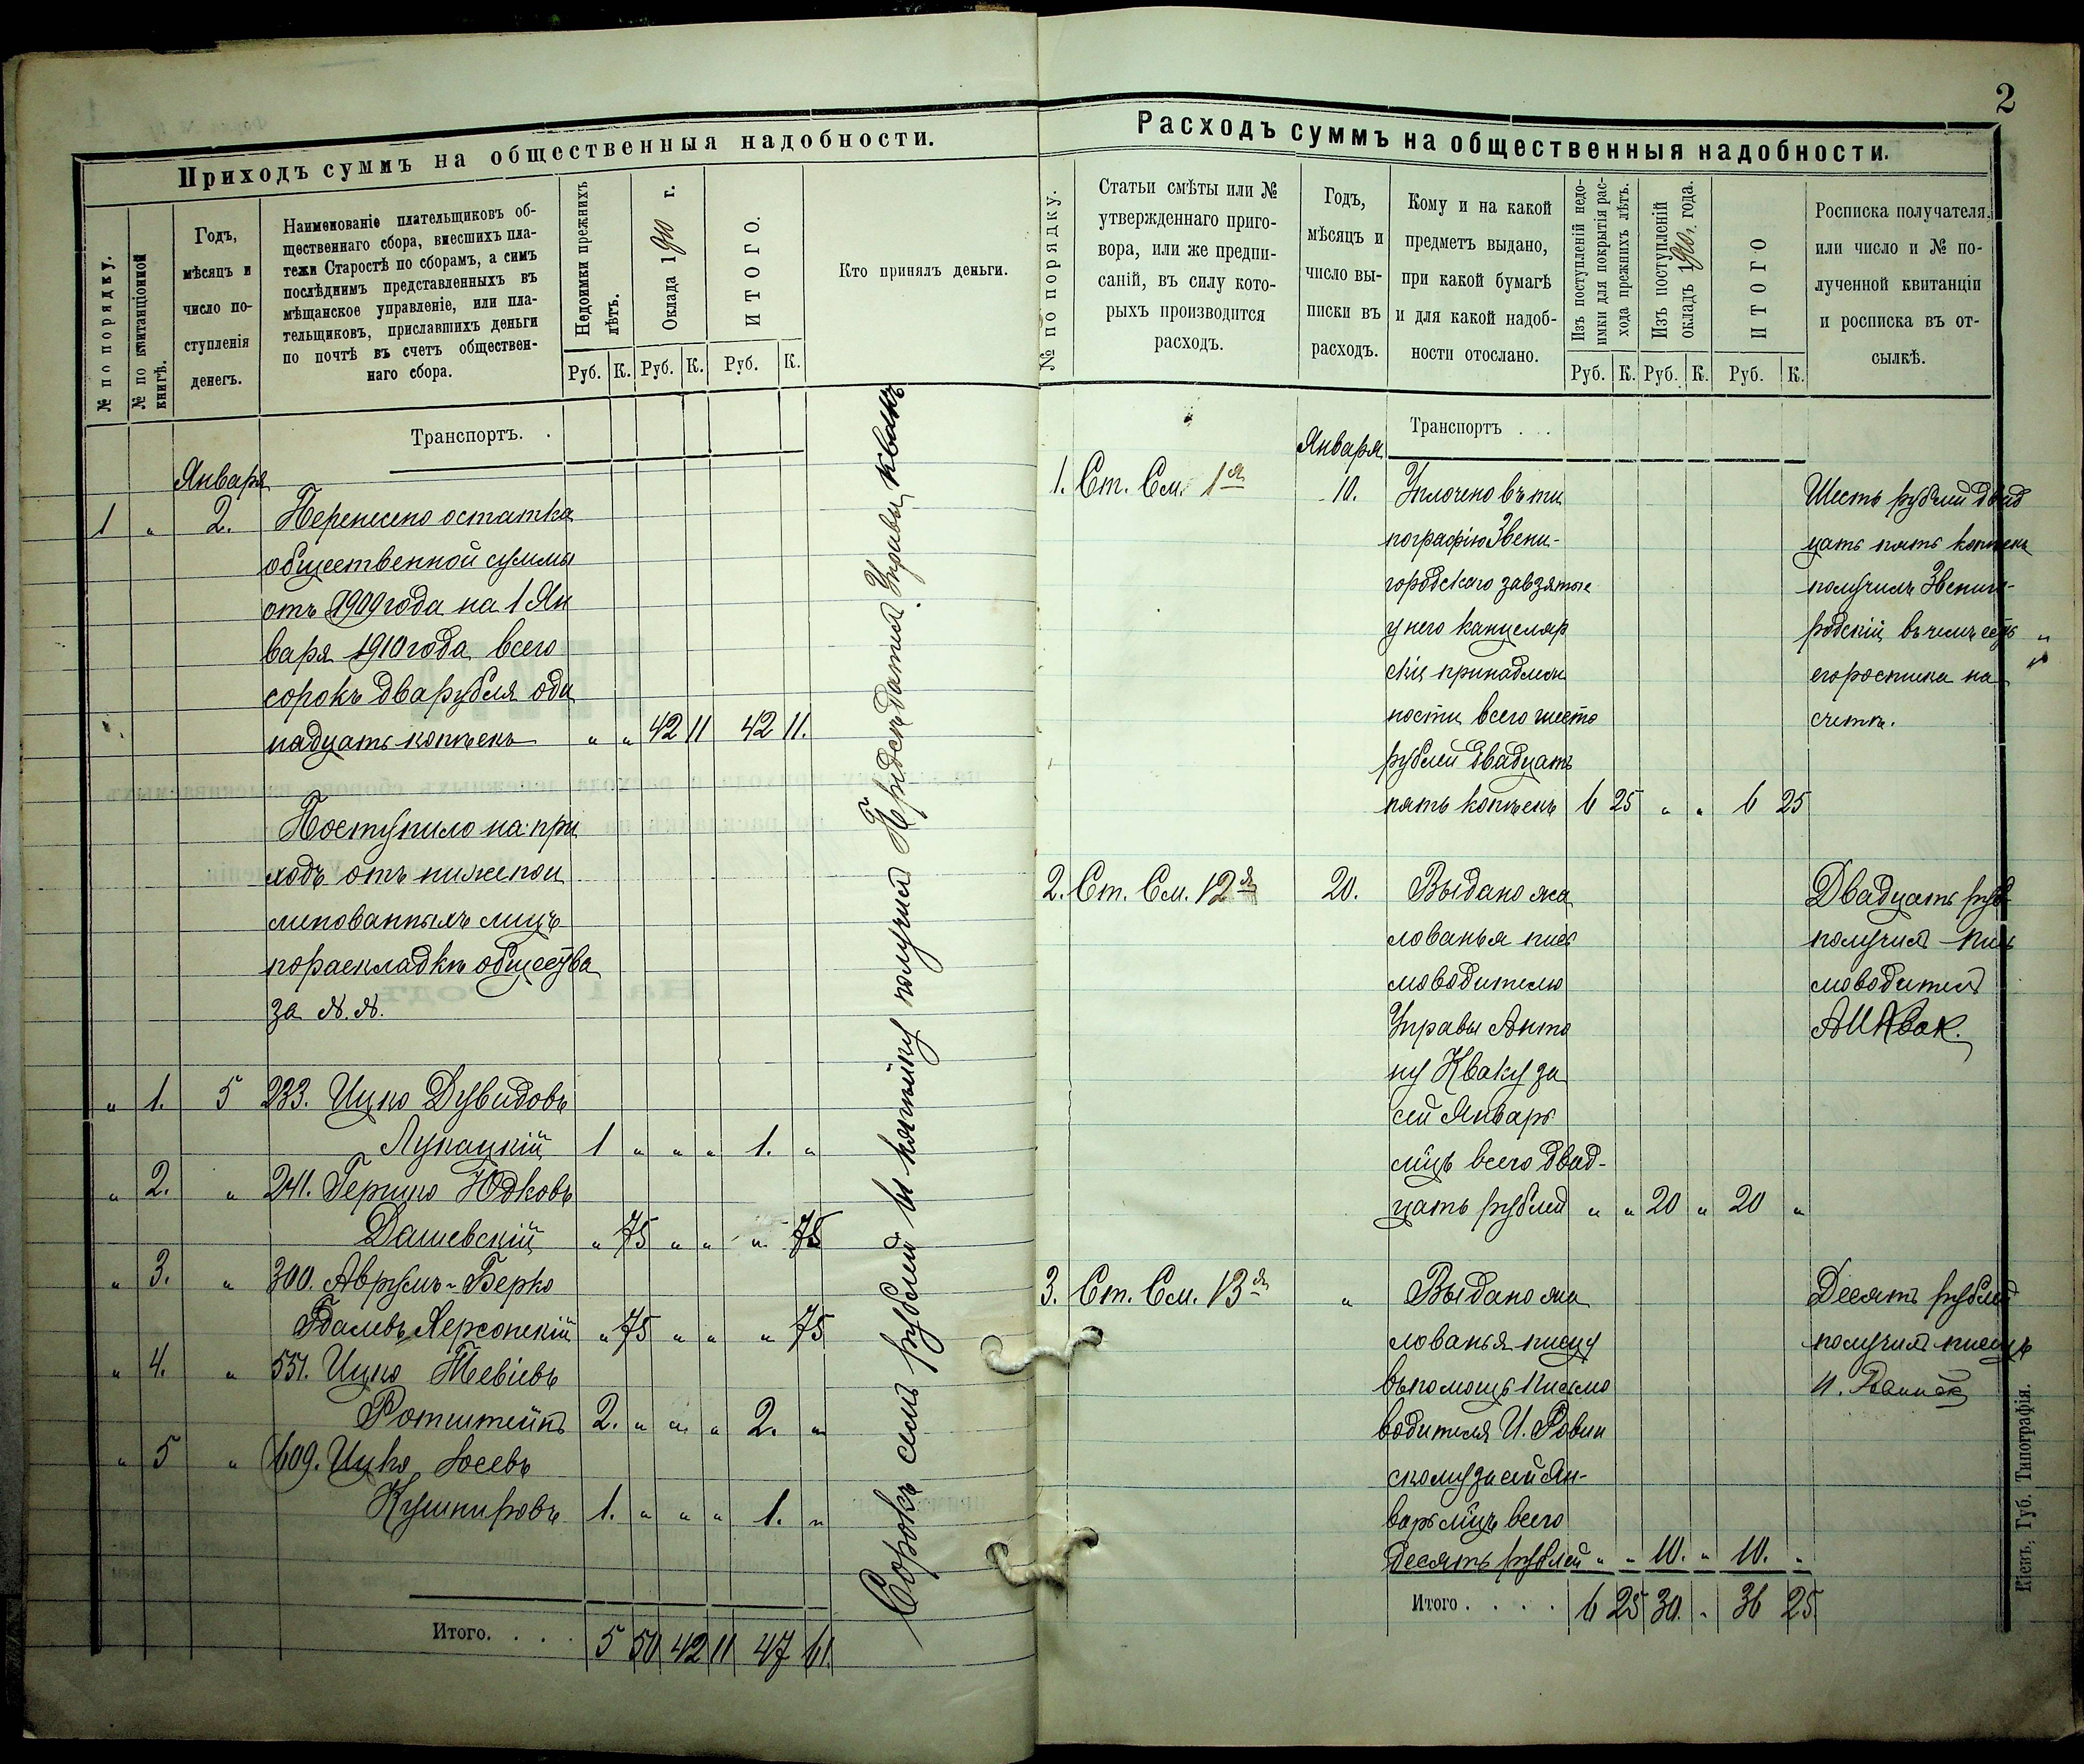 Приходъ суммъ на общественныя надобности.
№ по порядку.
№ по квитанціонной книгѣ.
Годъ,
мѣсяцъ и
число по-
ступленія
денегъ.
Наименованіе плательщиковъ об-
щественнаго сбора, внесшихъ пла-
тежи Старостѣ по сборамъ, а симъ
послѣднимъ представленныхъ въ
мѣщанское управленіе, или пла-
тельщиковъ, приславшихъ деньги
по почтѣ въ счетъ обществен-
наго сбора.
Недоимки прежнихъ
лѣтъ.
Оклада 1910 г.
ИТОГО.
Руб. К. Руб. К. Руб. К.
Кто принялъ деньги.
Транспортъ. .
Января
1 " 2. Перенесено остатка
общественной суммы
отъ 1909 года на 1 Ян
варя 1910 года всего
сорокъ два рубля оди
надцать копѣекъ " " 42 11 42 11.
Поступило на при
ходъ отъ нижепои
менованныхъ лицъ
по раскладкѣ общества
за N. N.
" 1. 5 233. Ицко Дувидовъ
Лупацкій 1 " " " 1. "
" 2. " 241. Гершко Юдковъ
Дашевскій " 75 " " " 75
" 3. " 300. Аврумъ-Берко
Гдалевъ Херсонскій " 75 " " " 75
" 4. " 551. Ицко Тевіевъ
Ротштейнъ 2. " " " 2. "
" 5 " 609. Ицко Іосевъ
Кушнировъ 1. " " " 1. "
Итого. . . . 5 50 42 11 47 61.
Сорокъ семь рублей 61 копѣйку получилъ Предсѣдатель Управы Квакъ
2
Расходъ суммъ на общественныя надобности.
№ по порядку.
Статьи смѣты или №
утвержденнаго приго-
вора, или же предпи-
саній, въ силу кото-
рыхъ производится
расходъ.
Годъ,
мѣсяцъ и
число вы-
писки въ
расходъ.
Кому и на какой
предметъ выдано,
при какой бумагѣ
и для какой надоб-
ности отослано.
Изъ поступленій недо-
имки для покрытія рас-
хода прежнихъ лѣтъ.
Изъ поступленій
окладъ 1910 г. года.
ИТОГО
Руб. К. Руб. К. Руб. К.
Росписка получателя,
или число и № по-
лученной квитанціи
и росписка въ от-
сылкѣ.
Транспортъ . . .
Января
1. Ст. См. 1я 10. Уплочено въ ти
пографію Звени-
городскаго за взятые
у него канцеляр
скія принадлеж
ности всего шесть
рублей двадцать
пять копѣекъ 6 25 " " 6 25
Шесть рублей двад
цать пять копѣекъ
получилъ Звениго-
родскій въ чемъ есть
его росписка на
счетѣ.
2. Ст. См. 12я 20. Выдано жа
лованья пись
моводителю
Управы Анто
ну Кваку за
сей Январь
мѣцъ всего двад-
цать рублей " " 20 " 20 "
Двадцать руб
получилъ пись
моводитель
А И Квак.
3. Ст. См. 13я " Выдано жа
лованья писцу
въ помощь Письмо
водителя И. Ровин
скому за сей Ян-
варь мѣцъ всего
десять рублей " " 10. " 10. "
Десять рублей
получилъ писецъ
Итого . . . . 6 25 30. " 36 25.
Кіевъ, Губ. Типографія.